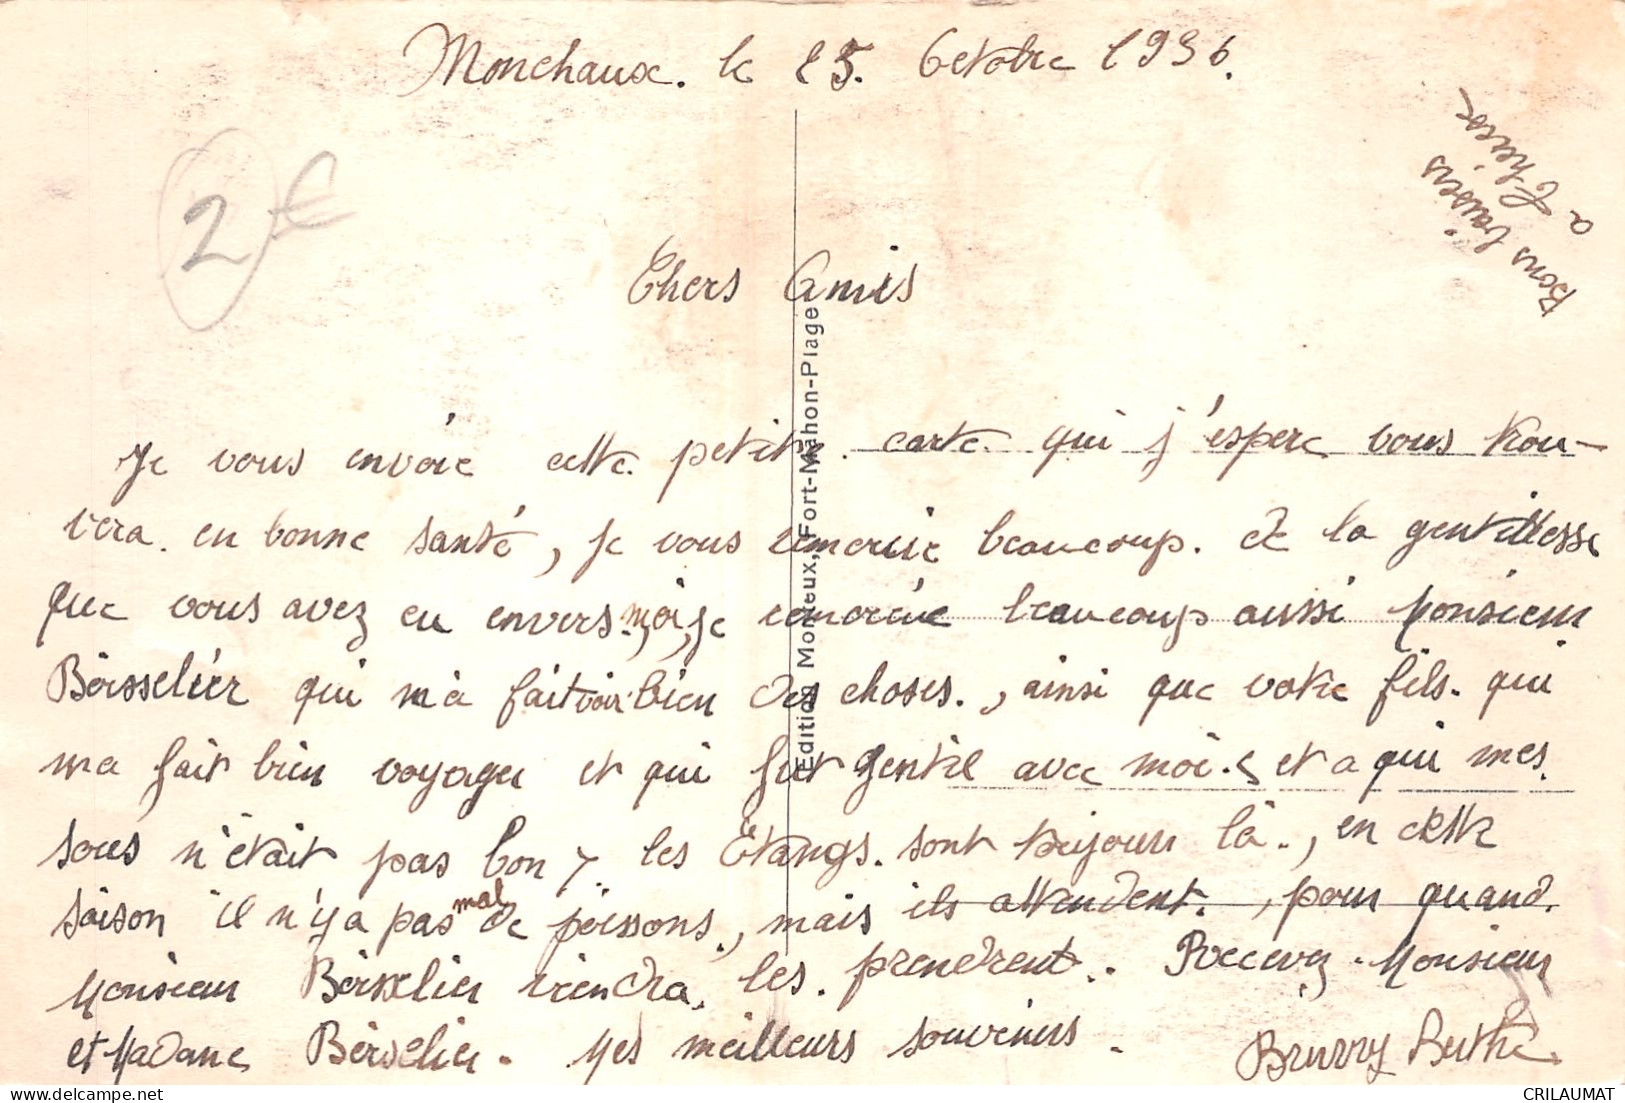 Monchaux. le 15. Octobre 1936.
Bons baisers
a Thérèse
2 €
Chers Amis
Je vous envoie cette petite carte qui j'espere vous trou-
vera. en bonne santé, je vous remercie beaucoup. de la gentillesse
que vous avez eu envers. moi, je remercie beaucoup aussi Monsieur
Boisselier qui m'a fait voir bien des choses., ainsi que votre fils. qui
m'a fait bien voyager et qui fut gentil avec moi. et a qui mes
sous n'était pas bon, les Etangs. sont toujours là., en cette
saison il n'y a pas mal de poissons., mais ils attendent., pour quand.
Monsieur Boisselier viendra. les. prendrent.. Recevez. Monsieur
et Madame Boisselier. Mes meilleurs souvenirs.
Bruvry Berthe
Edition Monieux, Fort-Mahon-Plage
CRILAUMAT